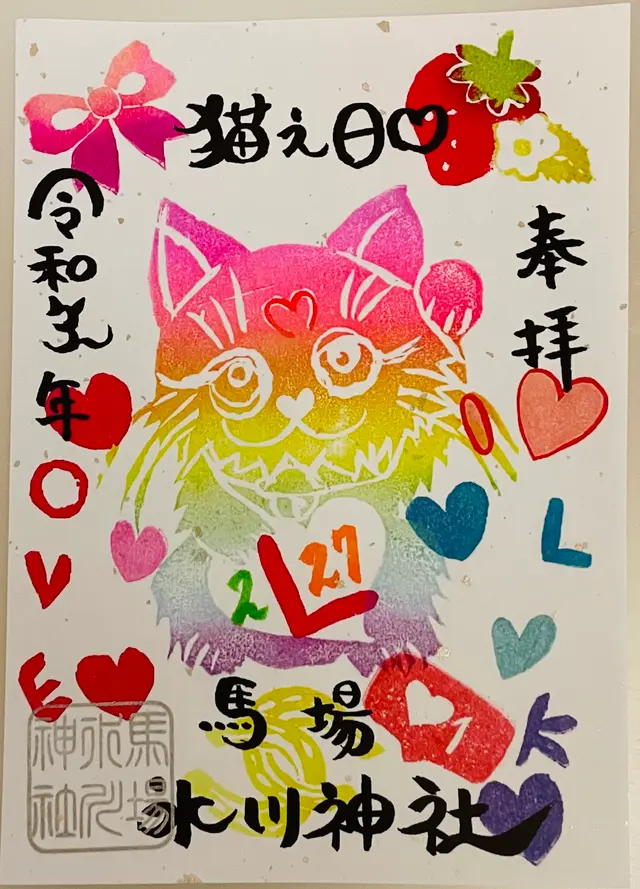 猫之日♡
奉拝
令和
年
L
O
V
E
2
27
L
K
1
馬場
氷川神社
馬場
氷川
神社